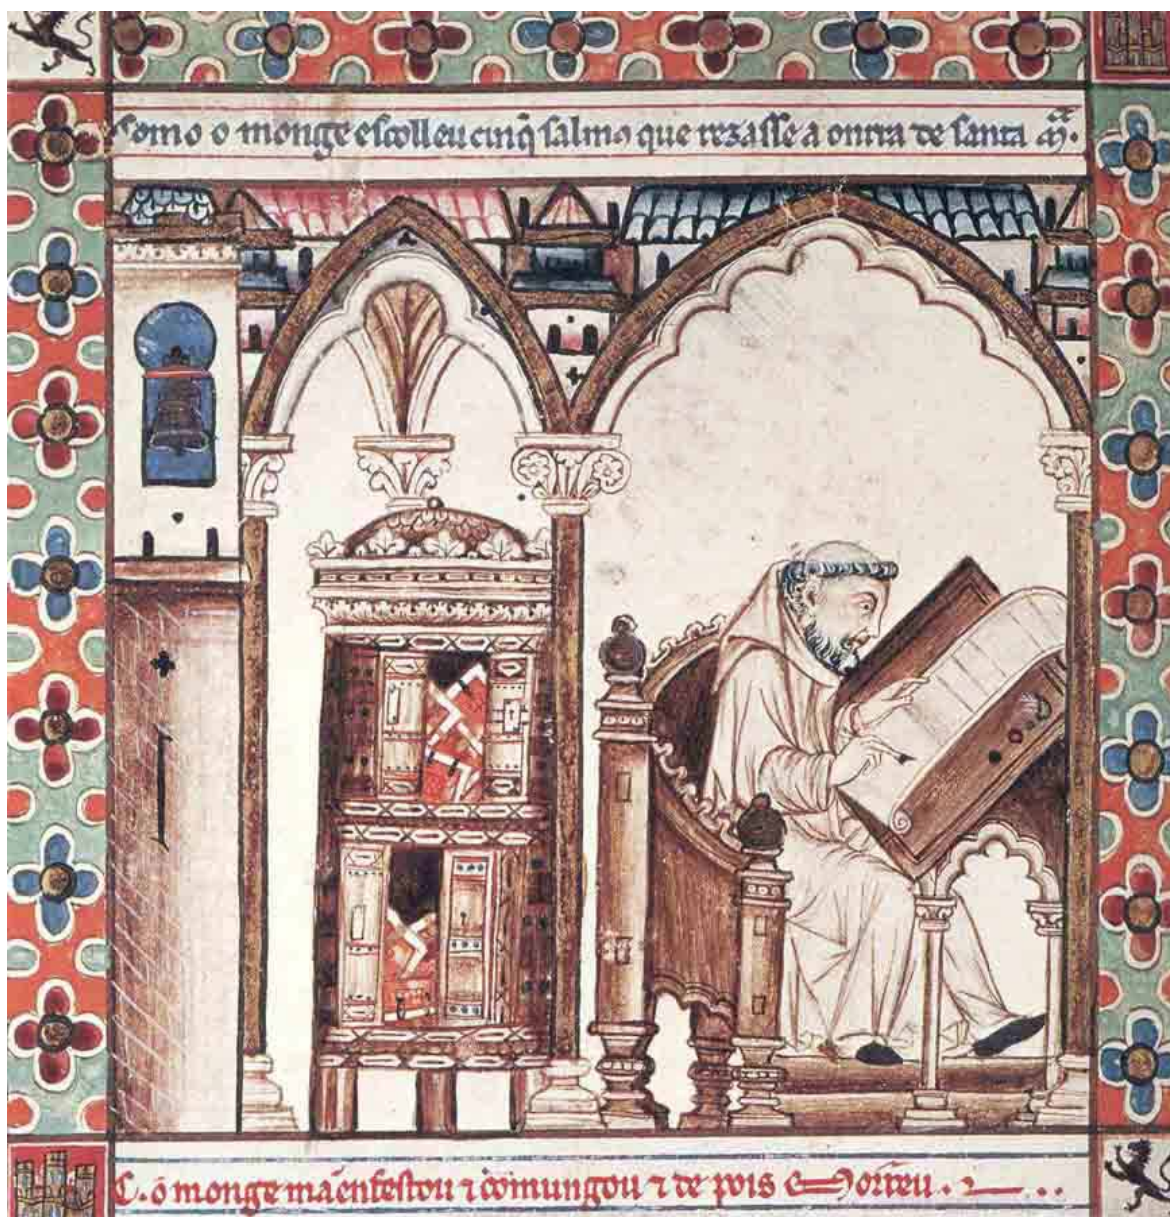 Como o monge escolleu cinq̃ salmos que rezasse a onrra de santa Mª.
C. o monge mãenfestou ⁊ cõmungou ⁊ de pois Morreu.